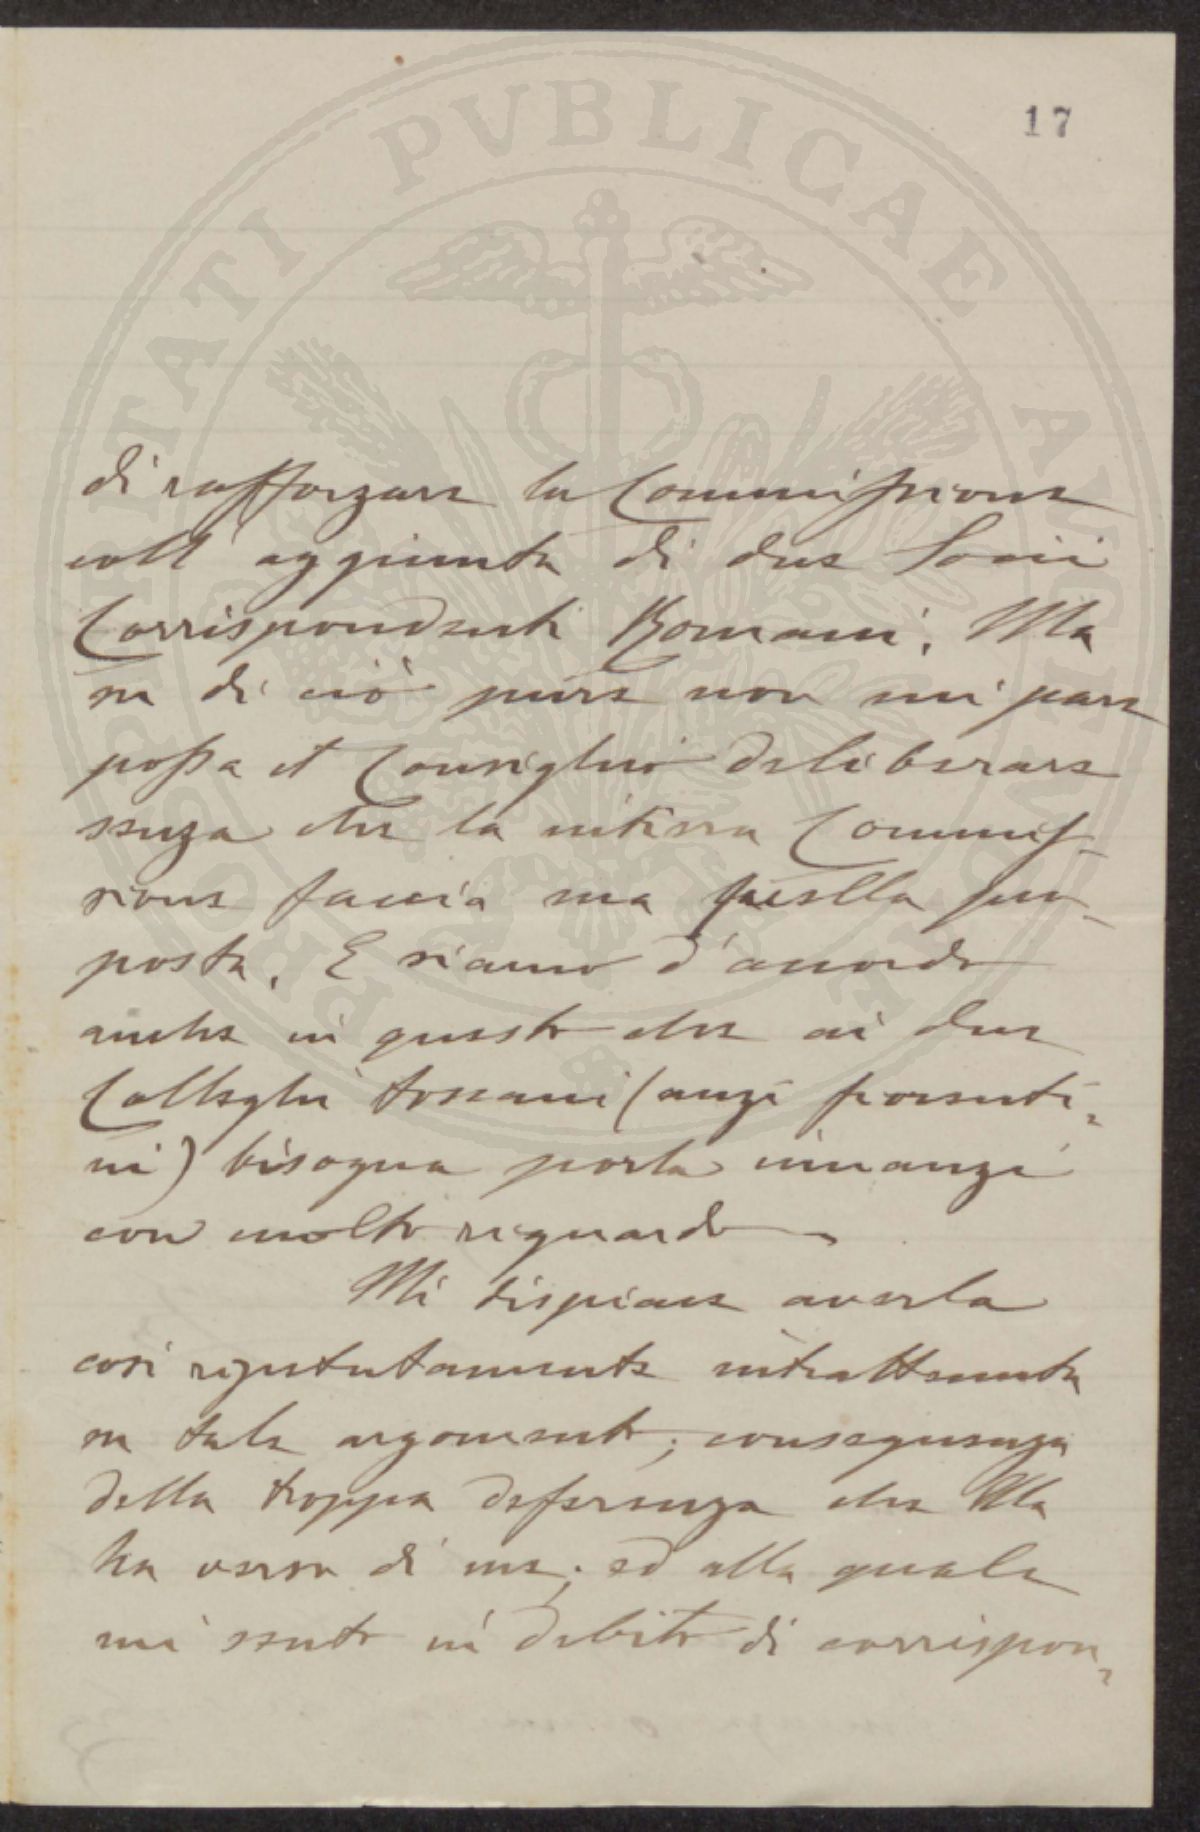 17
di rafforzare la Commissione
coll' aggiunta di due Socii
Corrispondenti Romani. Ma
su di ciò pure non mi pare
possa il Consiglio deliberare
senza che la intiera Commis-
sione faccia sua quella pro-
posta. E siamo d'accordo
anche in questo che ai due
Colleghi toscani (anzi fiorenti-
ni) bisogna porla innanzi
con molto riguardo.
Mi dispiace averla
così ripetutamente intrattenuta
su tale argomento; conseguenza
della troppa deferenza che Ella
ha verso di me; ed alla quale
mi sento in debito di corrispon-
PROSPERITATI PVBLICAE AVGENDAE